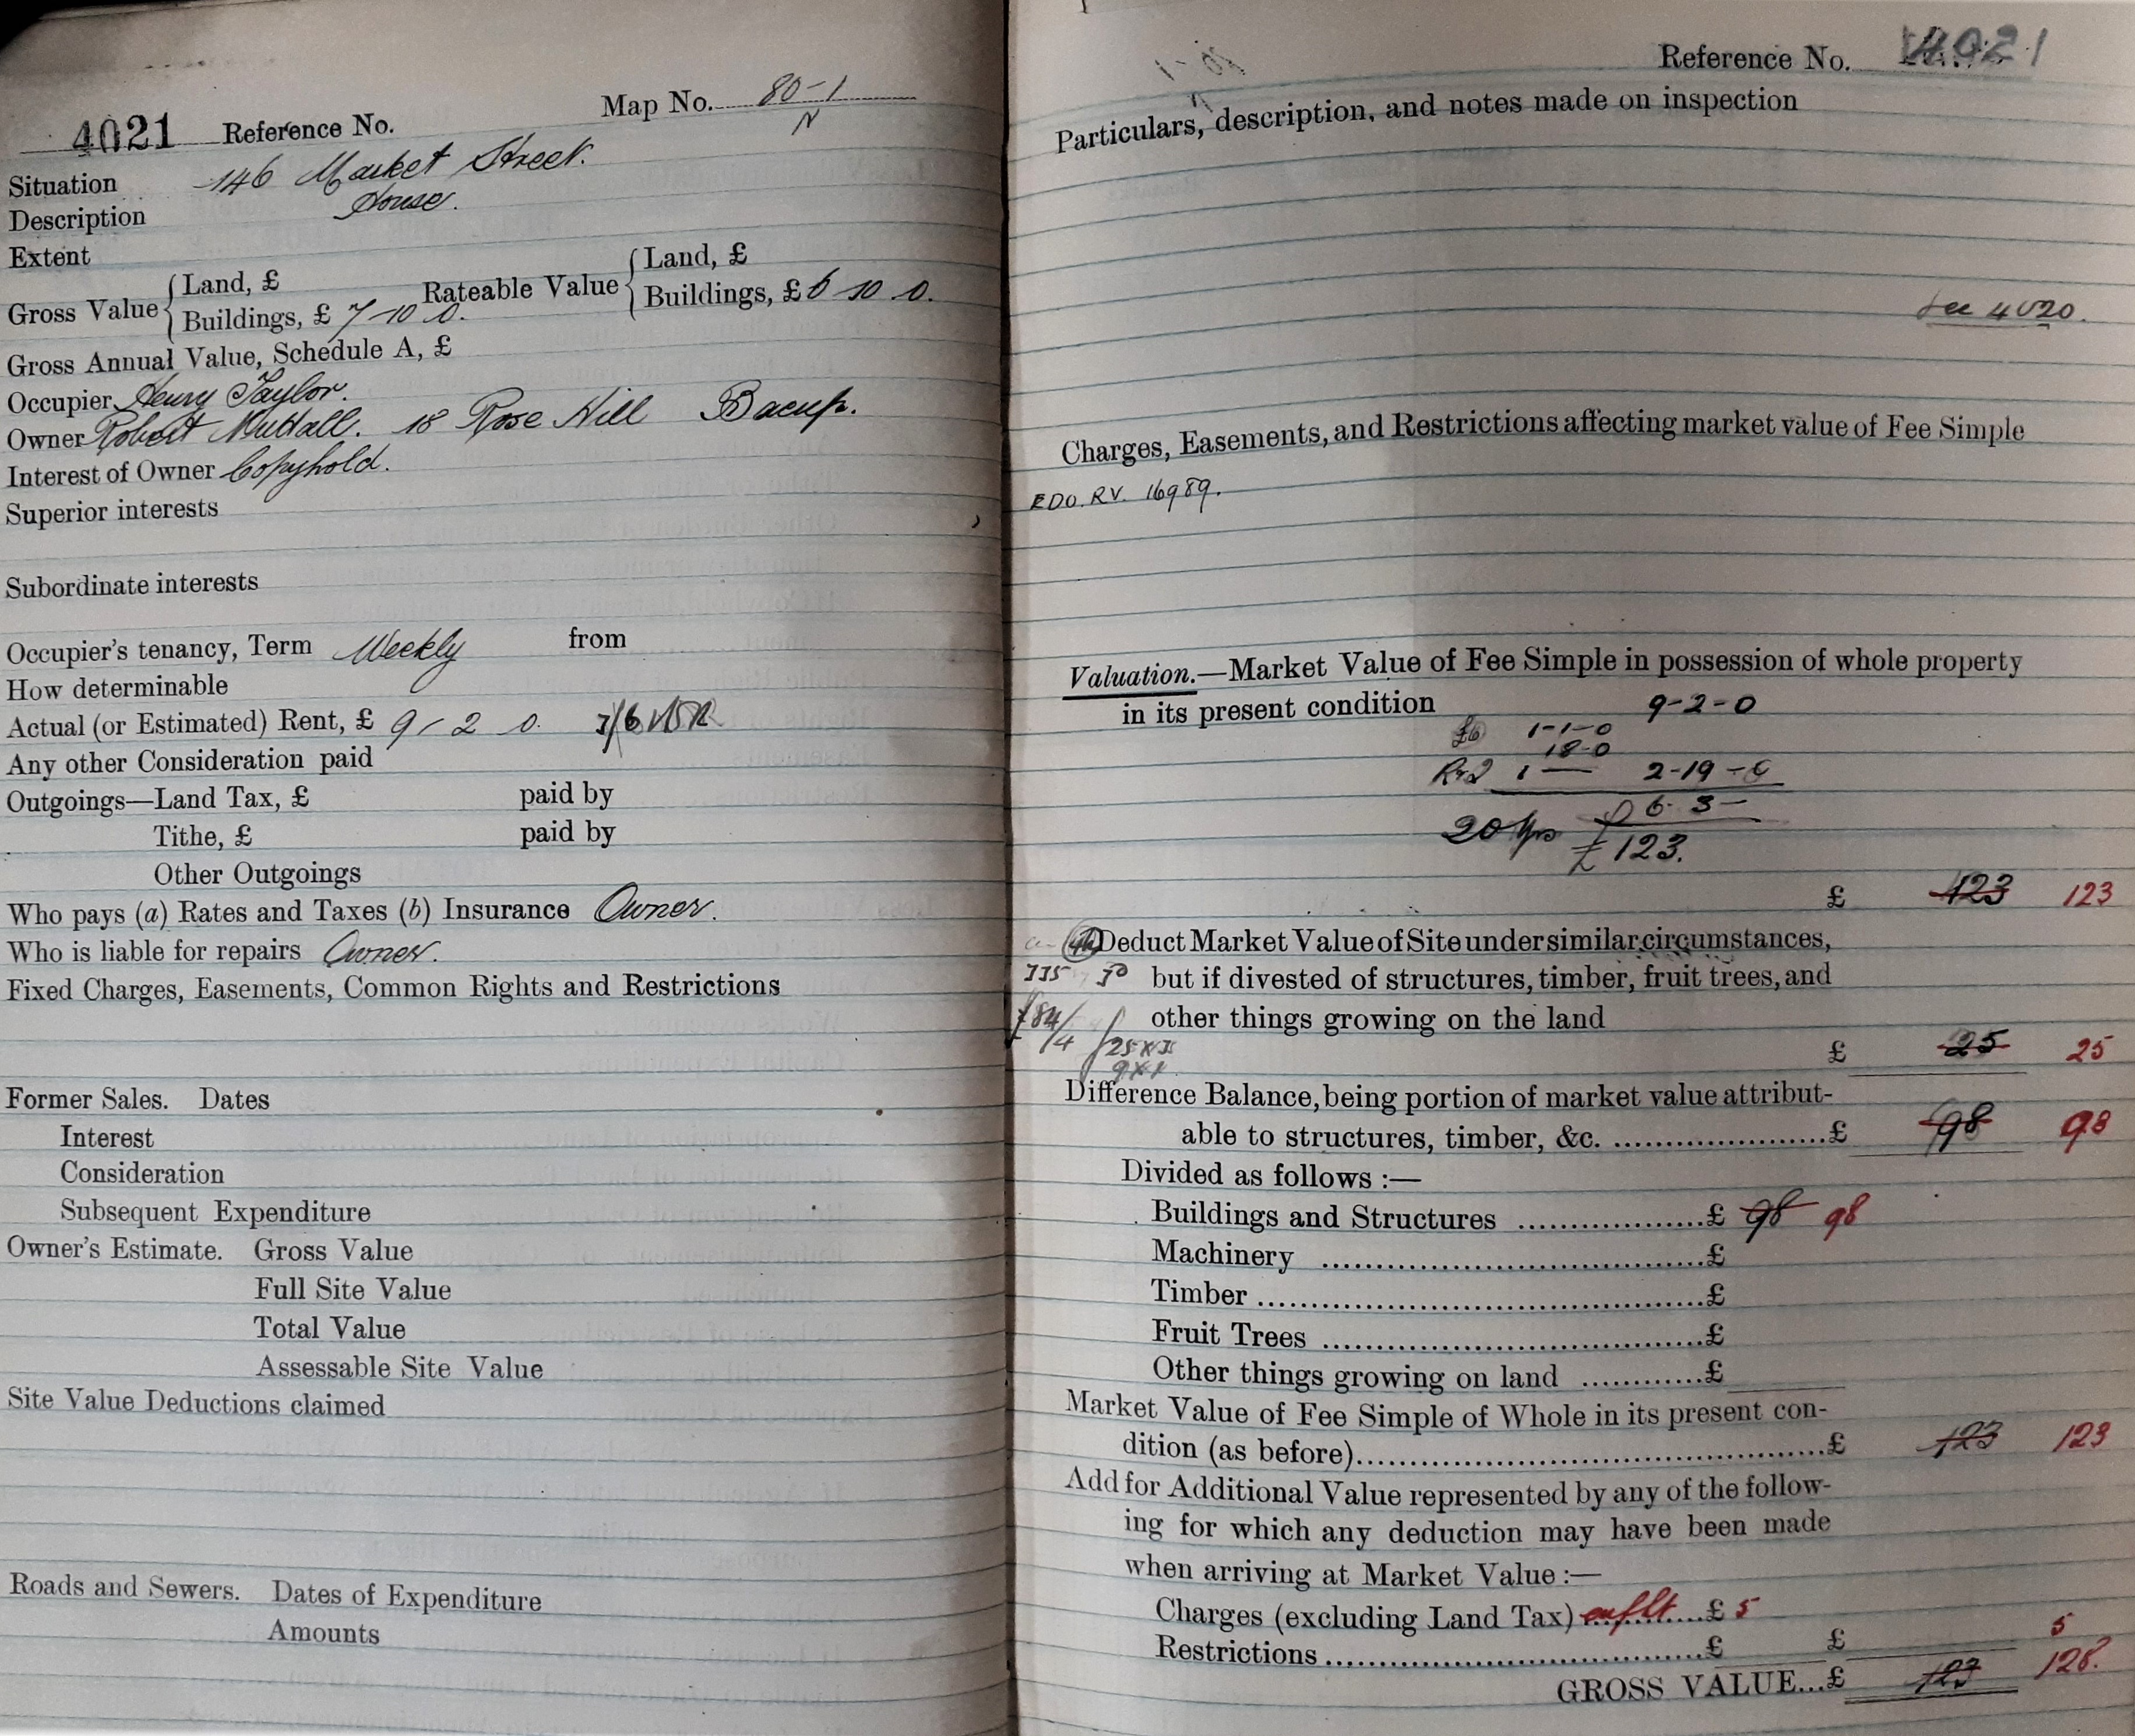 4021 Reference No. Map No. 80-1
N
Situation 146 Market Street.
Description House.
Extent
Gross Value { Land, £
Buildings, £ 7 10 0. Rateable Value { Land, £
Buildings, £ 6 10 0.
Gross Annual Value, Schedule A, £
Occupier Henry Taylor.
Owner Robert Nuttall. 18 Rose Hill Bacup.
Interest of Owner Copyhold.
Superior interests
Subordinate interests
Occupier's tenancy, Term Weekly from
How determinable
Actual (or Estimated) Rent, £ 9 2 0. 3/6
Any other Consideration paid
Outgoings—Land Tax, £ paid by
Tithe, £ paid by
Other Outgoings
Who pays (a) Rates and Taxes (b) Insurance Owner.
Who is liable for repairs Owner.
Fixed Charges, Easements, Common Rights and Restrictions
Former Sales. Dates
Interest
Consideration
Subsequent Expenditure
Owner's Estimate. Gross Value
Full Site Value
Total Value
Assessable Site Value
Site Value Deductions claimed
Roads and Sewers. Dates of Expenditure
Amounts
Reference No. 4021
Particulars, description, and notes made on inspection
See 4020.
Charges, Easements, and Restrictions affecting market value of Fee Simple
EDO. RV. 16989.
Valuation.—Market Value of Fee Simple in possession of whole property
in its present condition 9-2-0
1-1-0
18-0
1 — 2-19-0
6-3-
20 Yrs £123.
£ 123 123
Deduct Market Value of Site under similar circumstances,
but if divested of structures, timber, fruit trees, and
other things growing on the land
£ 25 25
Difference Balance, being portion of market value attribut-
able to structures, timber, &c. ....................£ 98 98
Divided as follows :—
Buildings and Structures ..................£ 98 98
Machinery ....................................£
Timber ..........................................£
Fruit Trees ....................................£
Other things growing on land ............£
Market Value of Fee Simple of Whole in its present con-
dition (as before)............................................£ 123 123
Add for Additional Value represented by any of the follow-
ing for which any deduction may have been made
when arriving at Market Value :—
Charges (excluding Land Tax) ........£ 5
Restrictions ....................................£ £ 5
GROSS VALUE...£ 123 128.